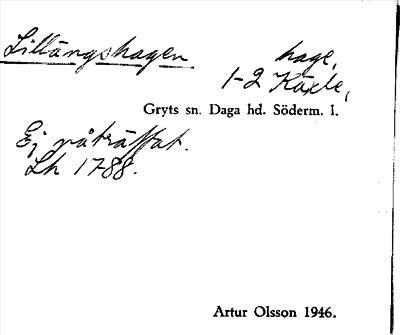 Lillängshagen. hage,
1-2 Käxle,
Gryts sn. Daga hd. Söderm. l.
Ej påträffat.
Lh 1788.
Artur Olsson 1946.